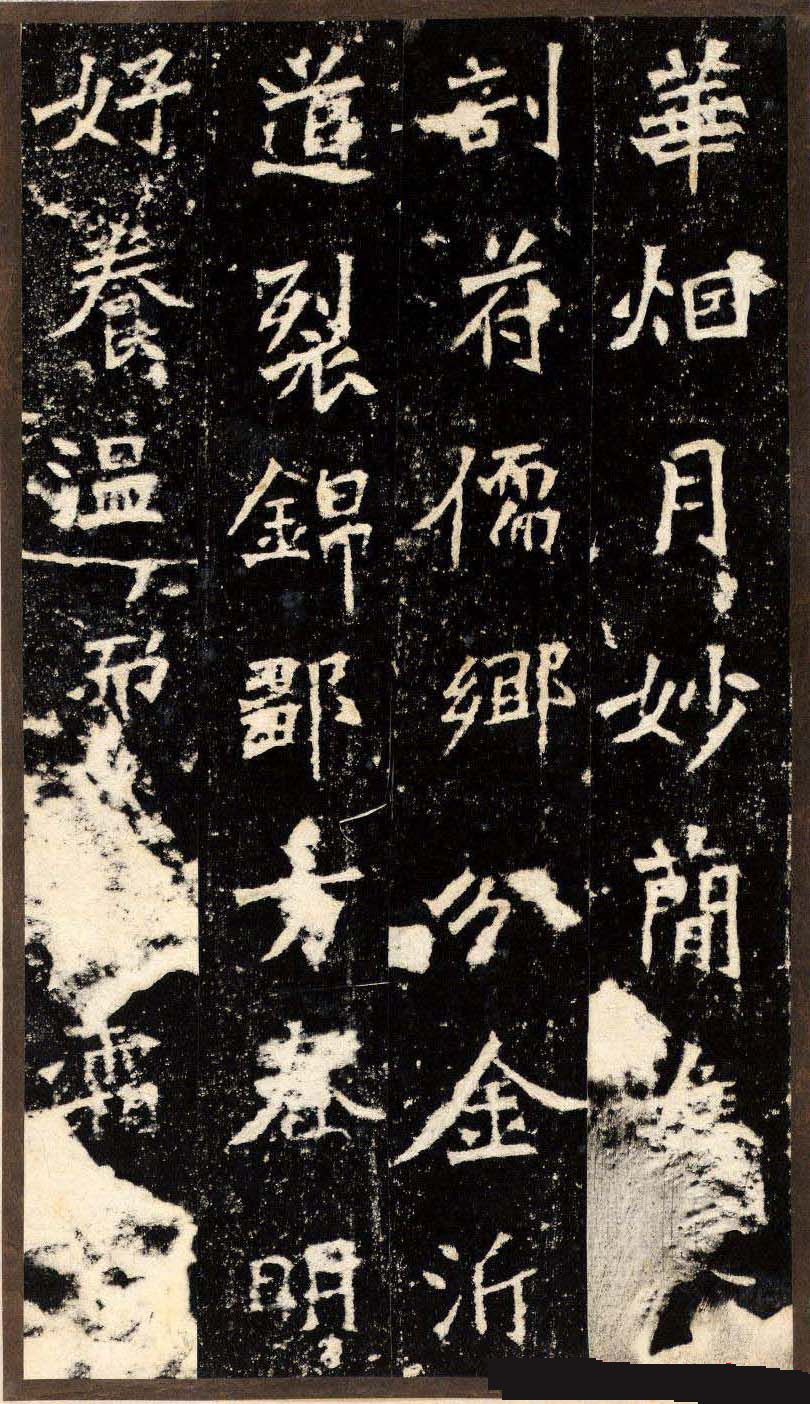 華烟月妙簡
剖符儒鄉分金沂
道裂錦鄒方春明
好養溫